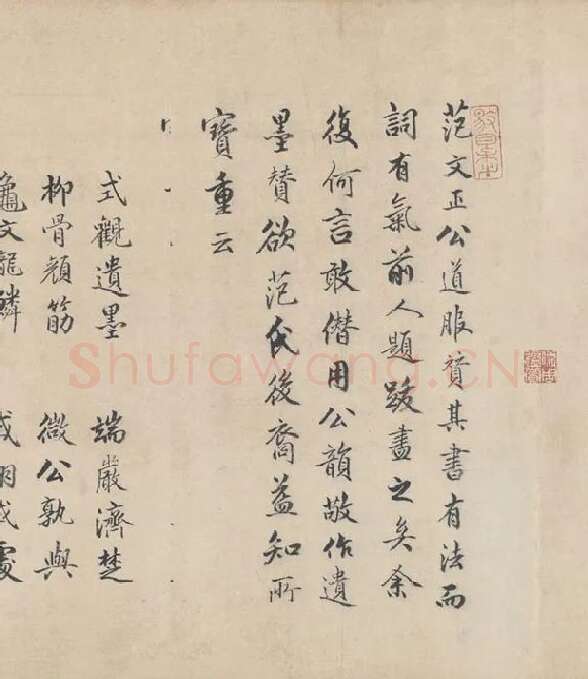 范文正公道服賛其書有法而
詞有氣前人題跋盡之矣余
復何言敢僭用公韻敬作遺
墨賛欲范氏後裔益知所
寶重云
式觀遺墨 端嚴濟楚
柳骨顔筋 微公孰與
龜文龍鱗 或
Shufawang.CN